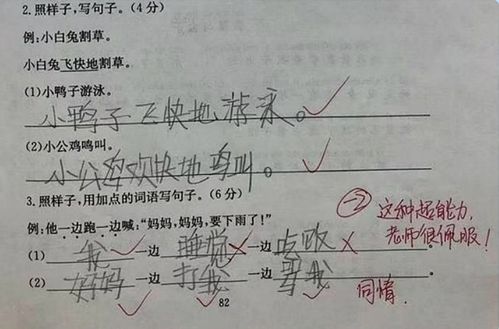 2.照样子,写句子。(4分)
例:小白兔割草。
小白兔飞快地割草。
(1)小鸭子游泳。
小鸭子飞快地游泳。
(2)小公鸡鸣叫。
小公鸡欢快地鸣叫。
3.照样子,用加点的词语写句子。(6分)
例:他一边跑一边喊:“妈妈,妈妈,要下雨了!”
(1) 我 一边 睡觉 一边 吃饭 。
(2) 妈妈 一边 打我 一边 骂我 。
-2 这种超能力,
老师很佩服!
同情.
82